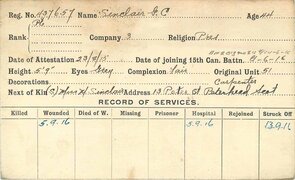 Reg. No. 437657 Name Sinclair G. C Age 44
Rank Pte Company 3 Religion Pres
Date of Attestation 23/8/15 Date of joining 15th Can. Battn. 9-6-16
Height 5'9" Eyes Grey Complexion Fair Original Unit 51
Decorations Carpenter
Next of Kin Sinclair Address 13 Peter St Peterhead Scot
RECORD OF SERVICES.
Killed Wounded Died of W. Missing Prisoner Hospital Rejoined Struck Off
5.9.16 5.9.16 13.9.16